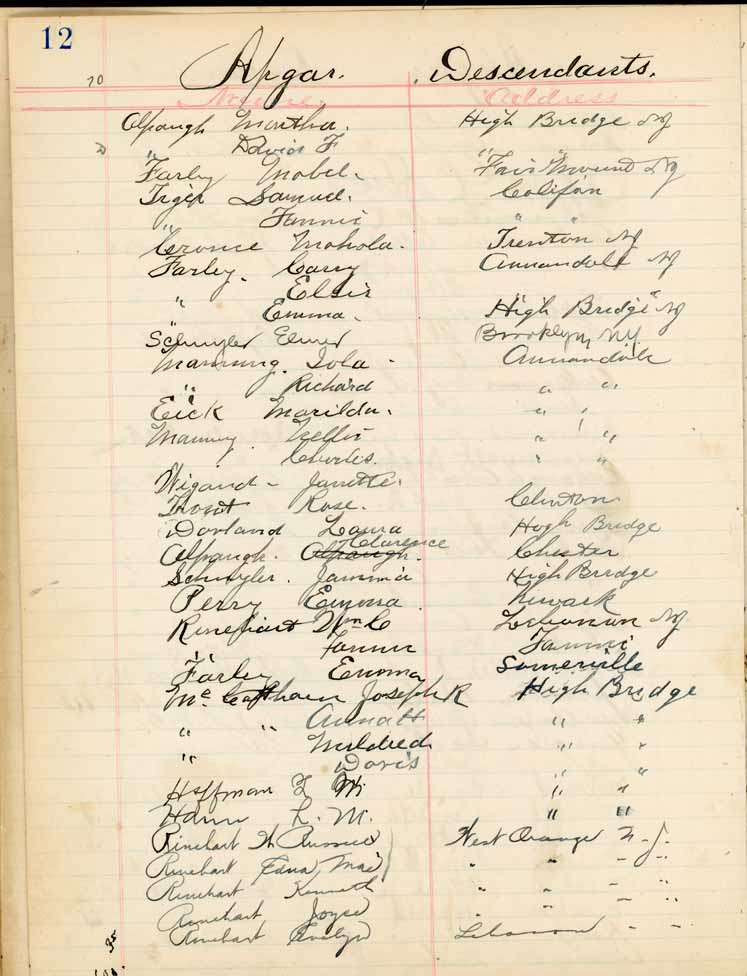 12
Apgar. Descendants.
70
Name. Address
Alpaugh Martha. High Bridge NJ
" David F " "
Farley Mabel. Fair Mount NJ
Tiger Samuel. Califon
" Fannie " "
Cronce Mahala. Trenton NJ
Farley. Carry Annandale NJ
" Elsie " "
" Emma. High Bridge NJ
Schuyler Elmer Brooklyn, NY.
Manning. Iola - Annandale
" Richard " "
Eick Marilda. " "
Manning. Nellie " "
" Charles. " "
Wigand - Janette.
Trout Rose. Clinton
Dorland Laura High Bridge
Alpaugh. Clarence Chester
Schuyler. High Bridge
Perry Emma. Newark
Rinehart Wm C Lebanon NJ
" Fannie
Farley Emma Somerville
Joseph R High Bridge
" " Anna H " "
" Mildred " "
Doris " "
Hoffman F W. " "
Hann L. M. " "
Rinehart West Orange N. J.
Rinehart Edna Mae " " "
Rinehart Kenneth " " "
Rinehart Joyce " " "
Rinehart Evelyn Lebanon " "